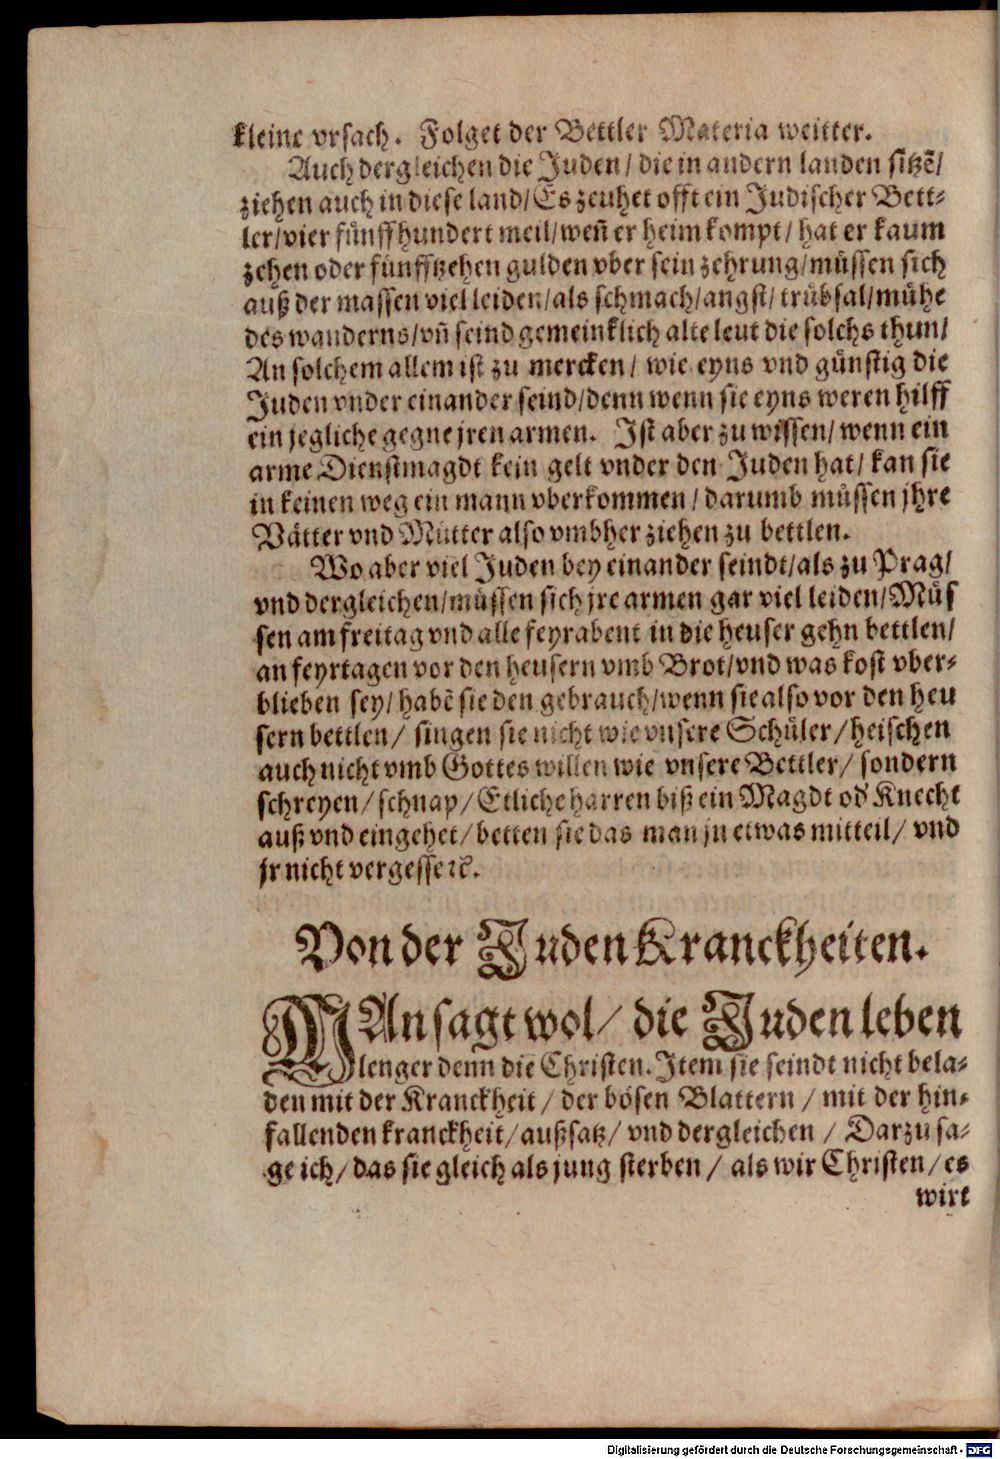 kleine vrsach. Folget der Bettler Materia weitter.
Auch dergleichen die Juden / die in andern landen sitzẽ/
ziehen auch in diese land/ Es zeuhet offt ein Judischer Bett-
ler/vier fünffhundert meil/weñ er heim kompt/ hat er kaum
zehen oder fünfftzehen gulden vber sein zehrung/müssen sich
auß der massen viel leiden/als schmach/angst/ trübsal/mühe
des wanderns/vñ seind gemeinklich alte leut die solchs thun/
An solchem allem ist zu mercken/ wie eyns vnd günstig die
Juden vnder einander seind/denn wenn sie eyns weren hilff
ein jegliche gegne jren armen. Ist aber zu wissen/ wenn ein
arme Dienstmagdt kein gelt vnder den Juden hat/ kan sie
in keinen weg ein mann vberkommen / darumb müssen jhre
Vätter vnd Mütter also vmbher ziehen zu bettlen.
Wo aber viel Juden bey einander seindt/als zu Prag/
vnd dergleichen/müssen sich jre armen gar viel leiden/Müs
sen am freitag vnd alle feyrabent in die heuser gehn bettlen/
an feyrtagen vor den heusern vmb Brot/vnd was kost vber-
blieben sey/ habẽ sie den gebrauch/wenn sie also vor den heu
sern bettlen/ singen sie nicht wie vnsere Schüler/heischen
auch nicht vmb Gottes willen wie vnsere Bettler/ sondern
schreyen/ schnap/ Etliche harren biß ein Magdt od' Knecht
auß vnd eingehet/ betten sie das man jn etwas mitteil/ vnd
jr nicht vergesse ꝛc.
Von der Juden Kranckheiten.
MAn sagt wol/ die Juden leben
lenger denn die Christen. Item sie seindt nicht bela-
den mit der Kranckheit / der bösen Blattern / mit der hin-
fallenden kranckheit/außsatz/ vnd dergleichen / Darzu sa-
ge ich/ das sie gleich als jung sterben / als wir Christen/ es
wirt
Digitalisierung gefördert durch die Deutsche Forschungsgemeinschaft - DFG